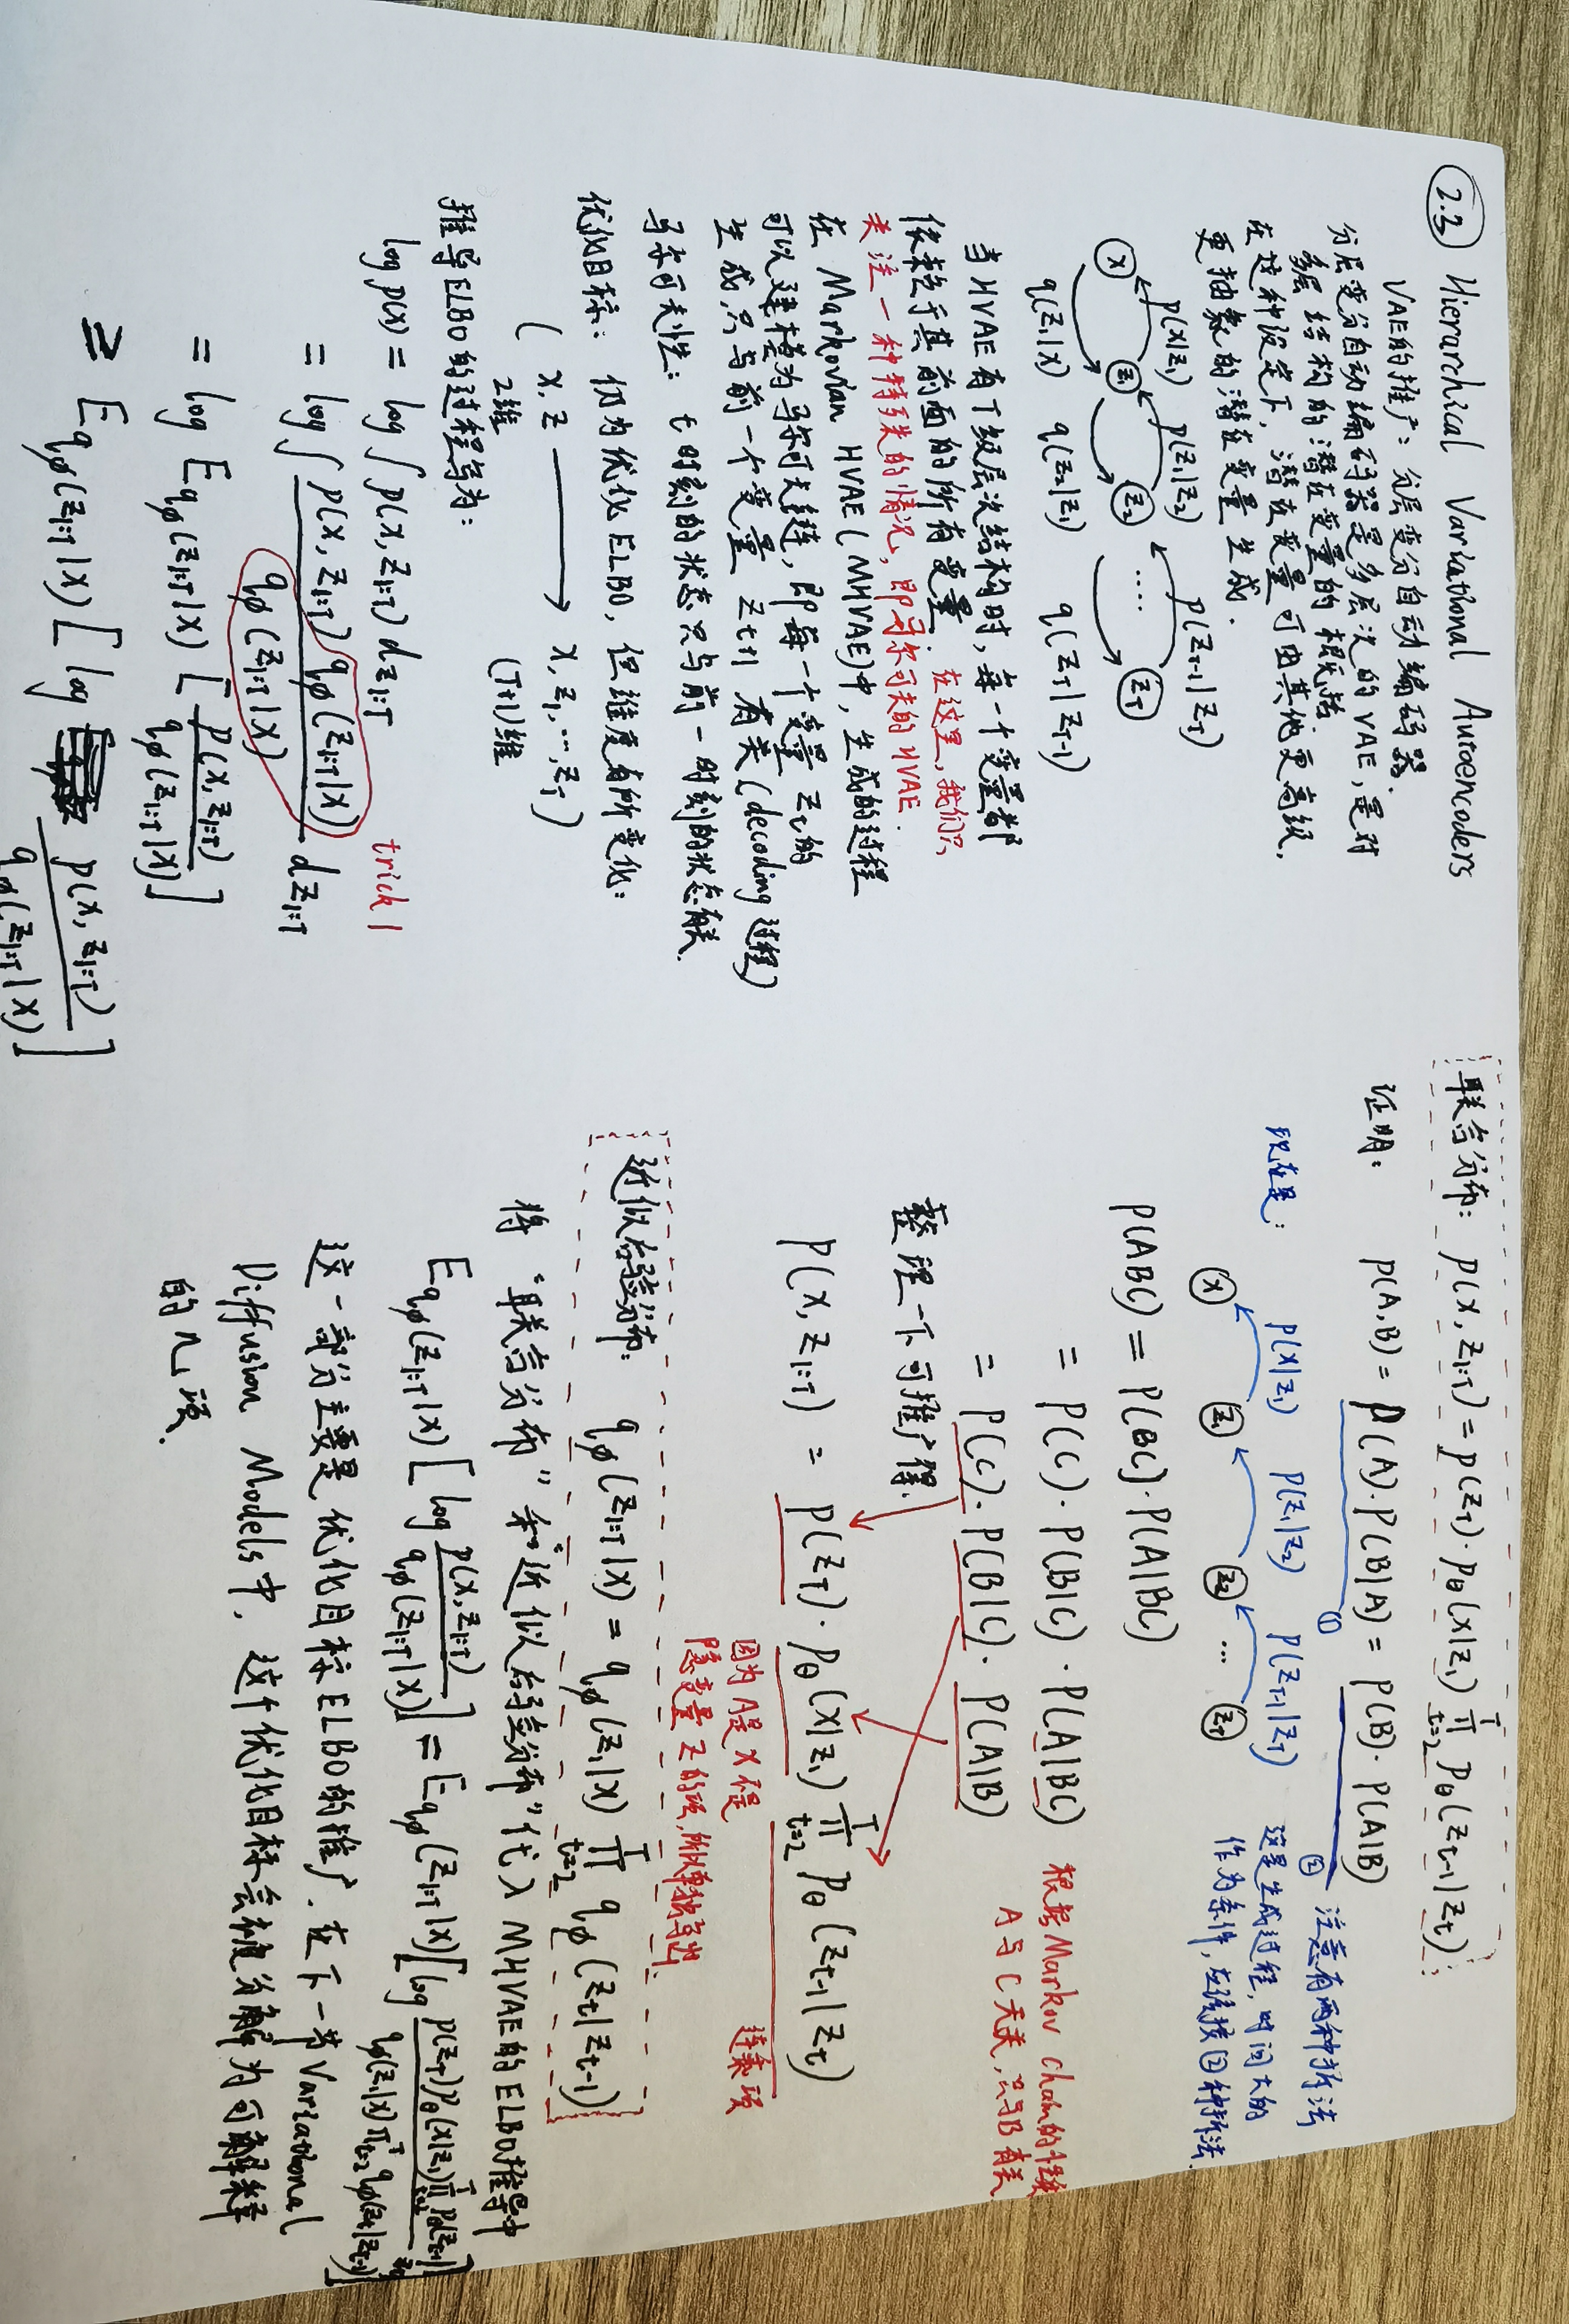 2.3 Hierarchical Variational Autoencoders
VAE的推广: 分层变分自动编码器.
分层变分自动编码器是多层次的VAE, 是对
多层结构的潜在变量的概括.
在这种设定下, 潜在变量可由其他更高级,
更抽象的潜在变量生成.
p(x|z₁) p(z₁|z₂) p(z_{T-1}|z_T)
x z₁ z₂ .... z_T
q(z₁|x) q(z₂|z₁) q(z_T|z_{T-1})
当HVAE有T级层次结构时, 每一个变量都
依赖于其前面的所有变量. 在这里, 我们只
关注一种特殊的情况, 即马尔可夫的HVAE.
在 Markovian HVAE (MHVAE)中, 生成的过程
可以建模为马尔可夫链, 即每一个变量 z_t 的
生成, 只与前一个变量 z_{t+1} 有关 (decoding 过程)
马尔可夫性: t时刻的状态只与前一时刻的状态有关.
优化目标: 仍为优化ELBO, 但维度有所变化:
( x, z ⟶ x, z₁, ..., z_T )
2维 (T+1)维
推导ELBO的过程写为:
log p(x) = log ∫ p(x, z_{1:T}) dz_{1:T}
trick 1
= log ∫ p(x, z_{1:T}) q_φ(z_{1:T}|x) / q_φ(z_{1:T}|x) dz_{1:T}
= log E_{q_φ(z_{1:T}|x)} [ p(x, z_{1:T}) / q_φ(z_{1:T}|x) ]
≥ E_{q_φ(z_{1:T}|x)} [ log p(x, z_{1:T}) / q_φ(z_{1:T}|x) ]
联合分布: p(x, z_{1:T}) = p(z_T)·p_θ(x|z₁) ∏_{t=2}^T p_θ(z_{t-1}|z_t)
证明: p(A,B) = p(A)·p(B|A) = p(B)·p(A|B)
① ② 注意有两种拆法
现在是: p(x|z₁) p(z₁|z₂) p(z_{T-1}|z_T)
这是生成过程, 时间大的
作为条件, 应该按②种拆法.
x z₁ z₂ ... z_T
p(ABC) = p(BC)·p(A|BC)
= p(C)·p(B|C)·p(A|BC) 根据Markov chain的性质
= p(C)·p(B|C)·p(A|B) A与C无关, 只与B有关
整理一下可推广得.
p(x, z_{1:T}) = p(z_T)·p_θ(x|z₁) ∏_{t=2}^T p_θ(z_{t-1}|z_t)
因为A是x不是
隐变量z的项, 所以单独写出.
连乘项
近似后验分布: q_φ(z_{1:T}|x) = q_φ(z₁|x) ∏_{t=2}^T q_φ(z_t|z_{t-1})
将“联合分布”和“近似后验分布”代入MHVAE的ELBO推导中
E_{q_φ(z_{1:T}|x)} [ log p(x, z_{1:T}) / q_φ(z_{1:T}|x) ] = E_{q_φ(z_{1:T}|x)} [ log p(z_T)p_θ(x|z₁)∏_{t=2}^T p_θ(z_{t-1}|z_t) / q_φ(z₁|x)∏_{t=2}^T q_φ(z_t|z_{t-1}) ]
这一部分主要是优化目标ELBO的推广. 在下一节Variational
Diffusion Models中, 这个优化目标会被分解为可解释
的几项.